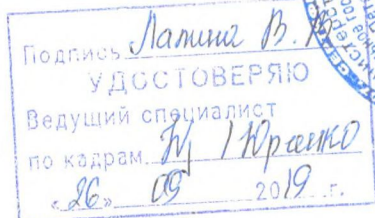 Подпись Лапина В. В.
УДОСТОВЕРЯЮ
Ведущий специалист
по кадрам
«26» 09 2019 г.